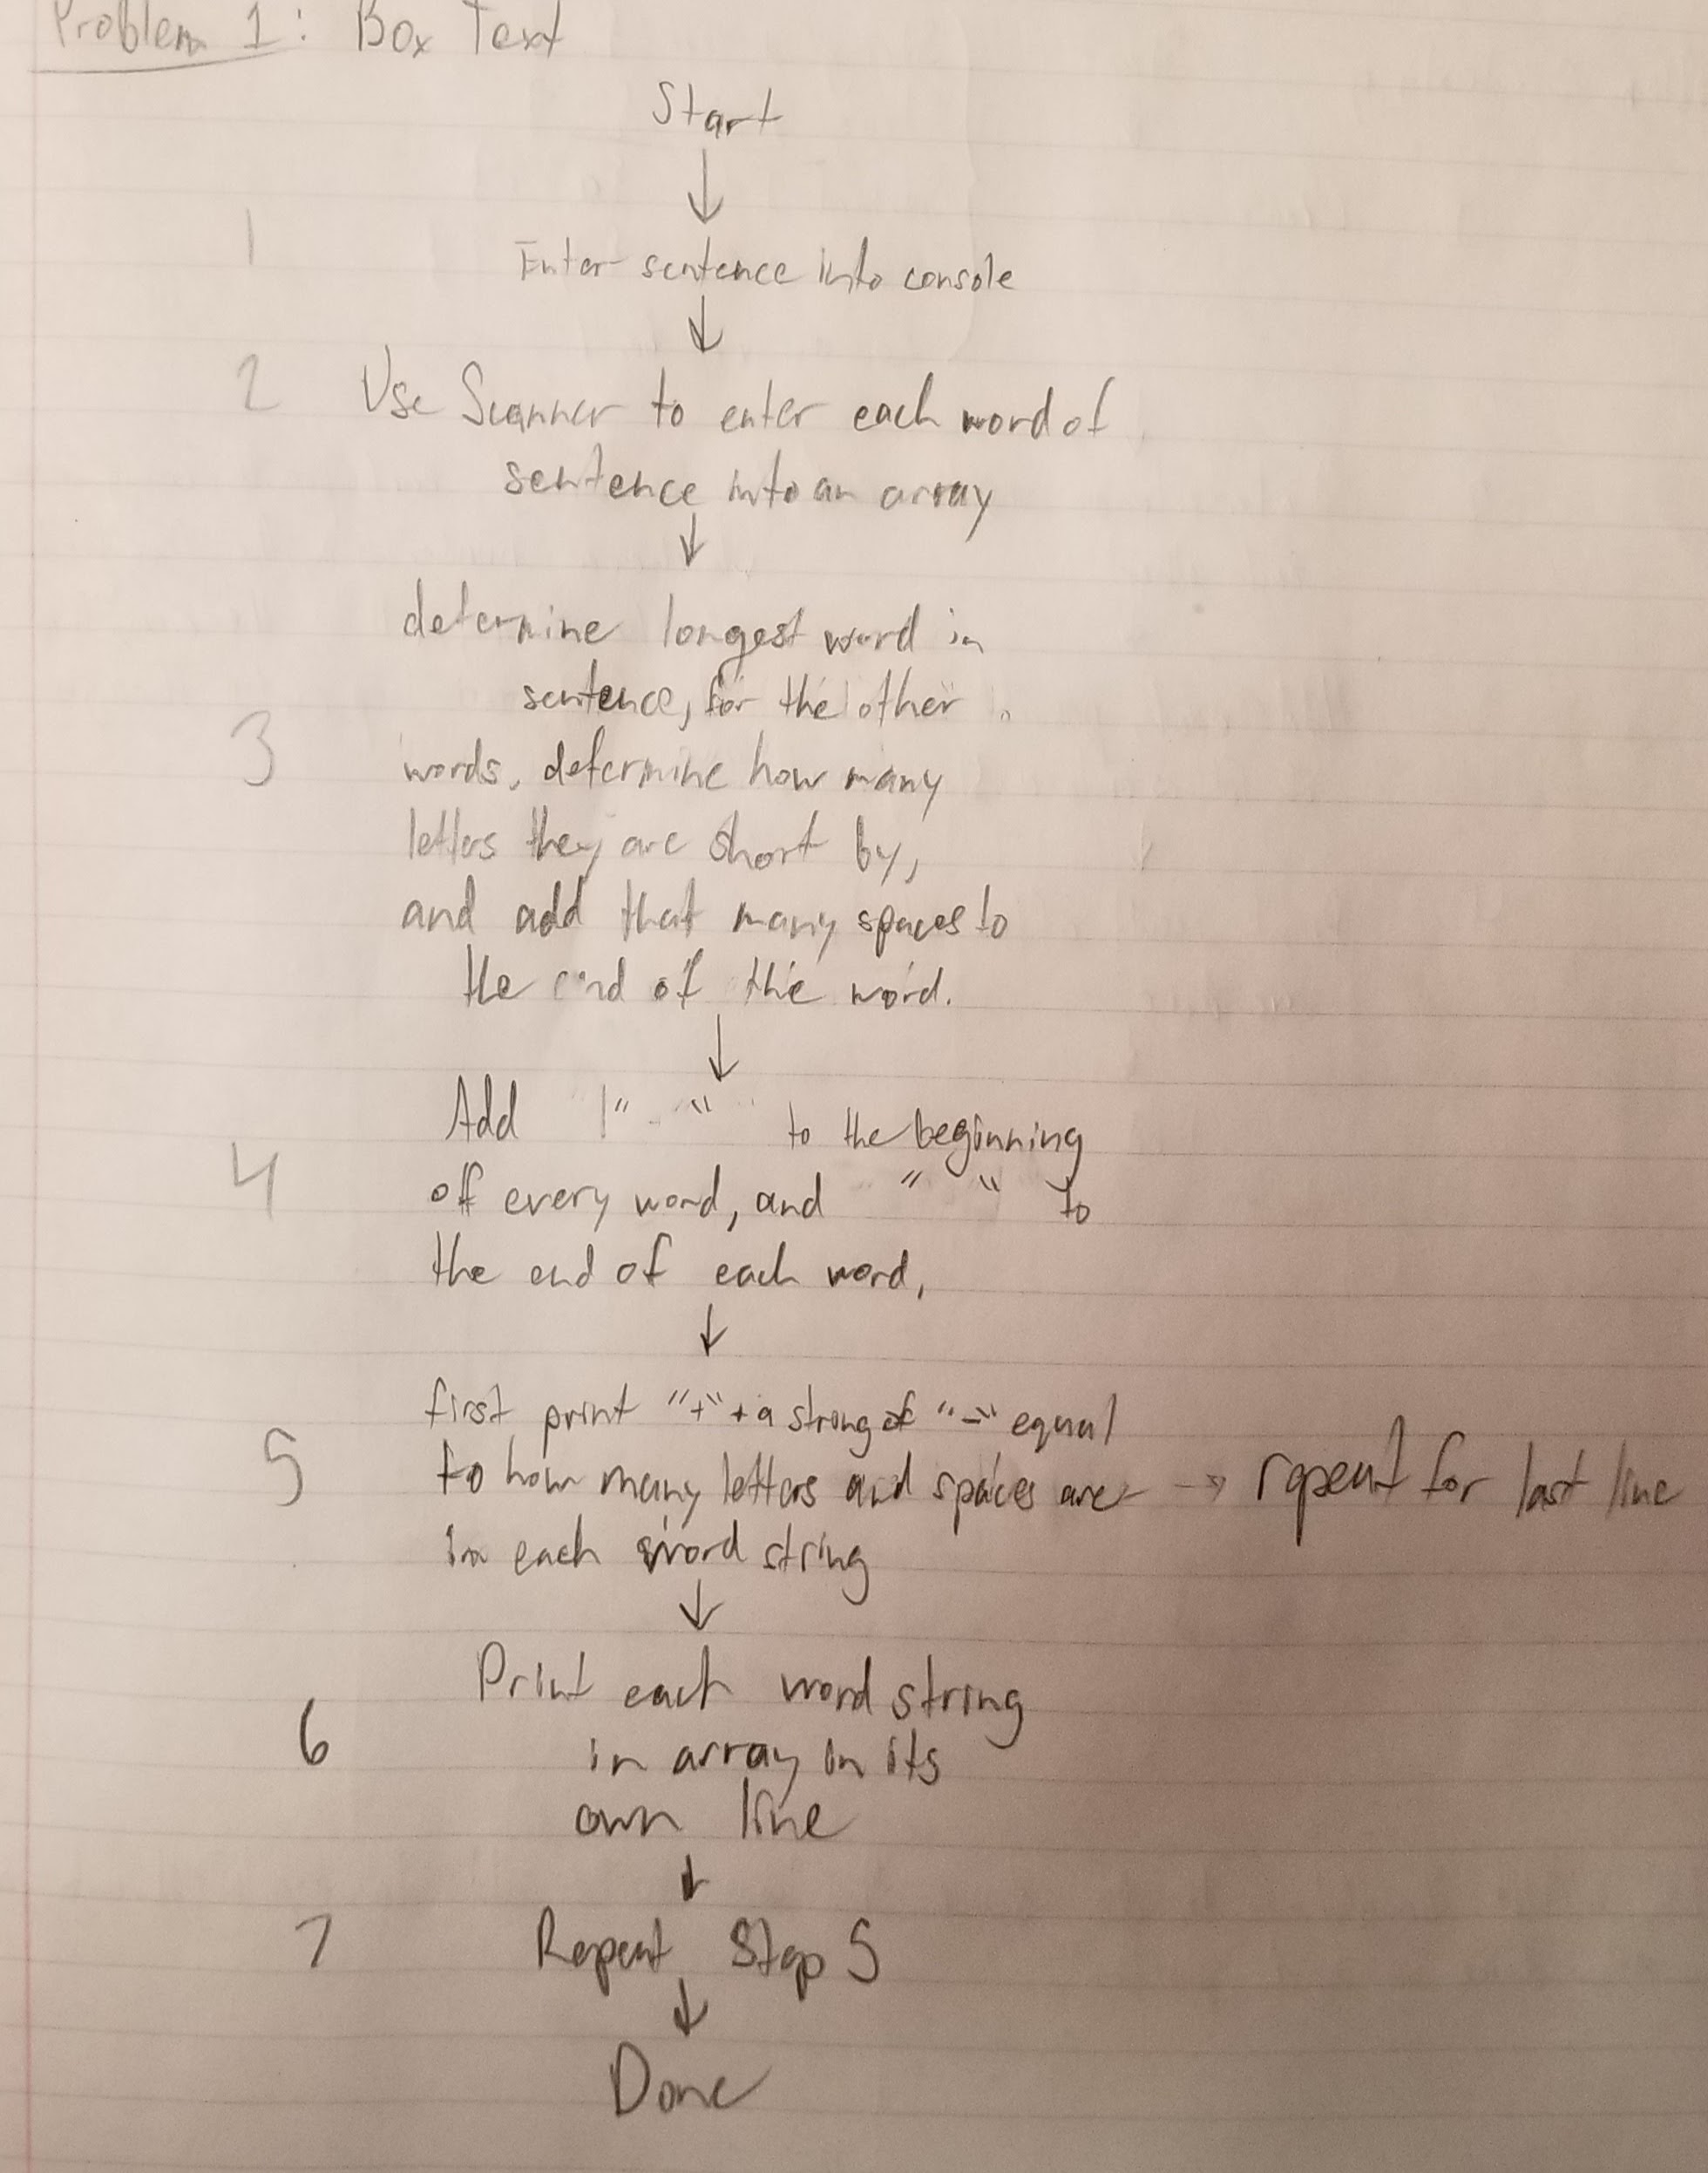 Problem 1: Box Text
Start
↓
1 Enter sentence into console
↓
2 Use Scanner to enter each word of
sentence into an array
↓
determine longest word in
sentence, for the other
3 words, determine how many
letters they are short by,
and add that many spaces to
the end of the word.
↓
Add |" " to the beginning
4 of every word, and " " to
the end of each word,
↓
first print "+" + a string of "-" equal
5 to how many letters and spaces are → repeat for last line
in each word string
↓
Print each word string
6 in array in its
own line
↓
7 Repeat Step 5
↓
Done